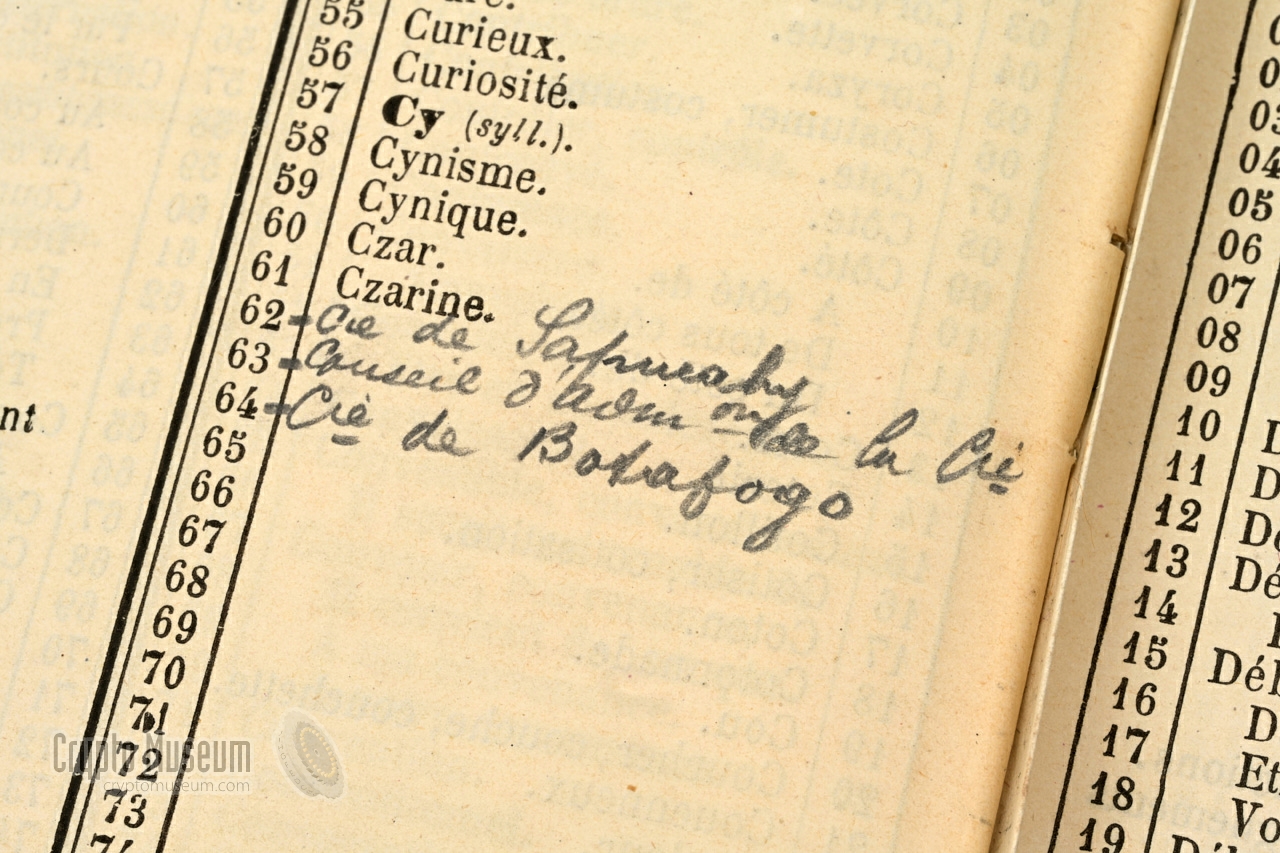 55 Curieux.
56 Curiosité.
57 Cy (syll.).
58 Cynisme.
59 Cynique.
60 Czar.
61 Czarine.
62 - Cie de
63 - Conseil d'Adm on de la Cie
64 - Cie de Botafogo
65
66
67
68
69
70
71
72
73
74
nt
03
04
05
06
07
08
09
10
11
12
13
14
15
16
17
18
19
Crypto Museum
cryptomuseum.com